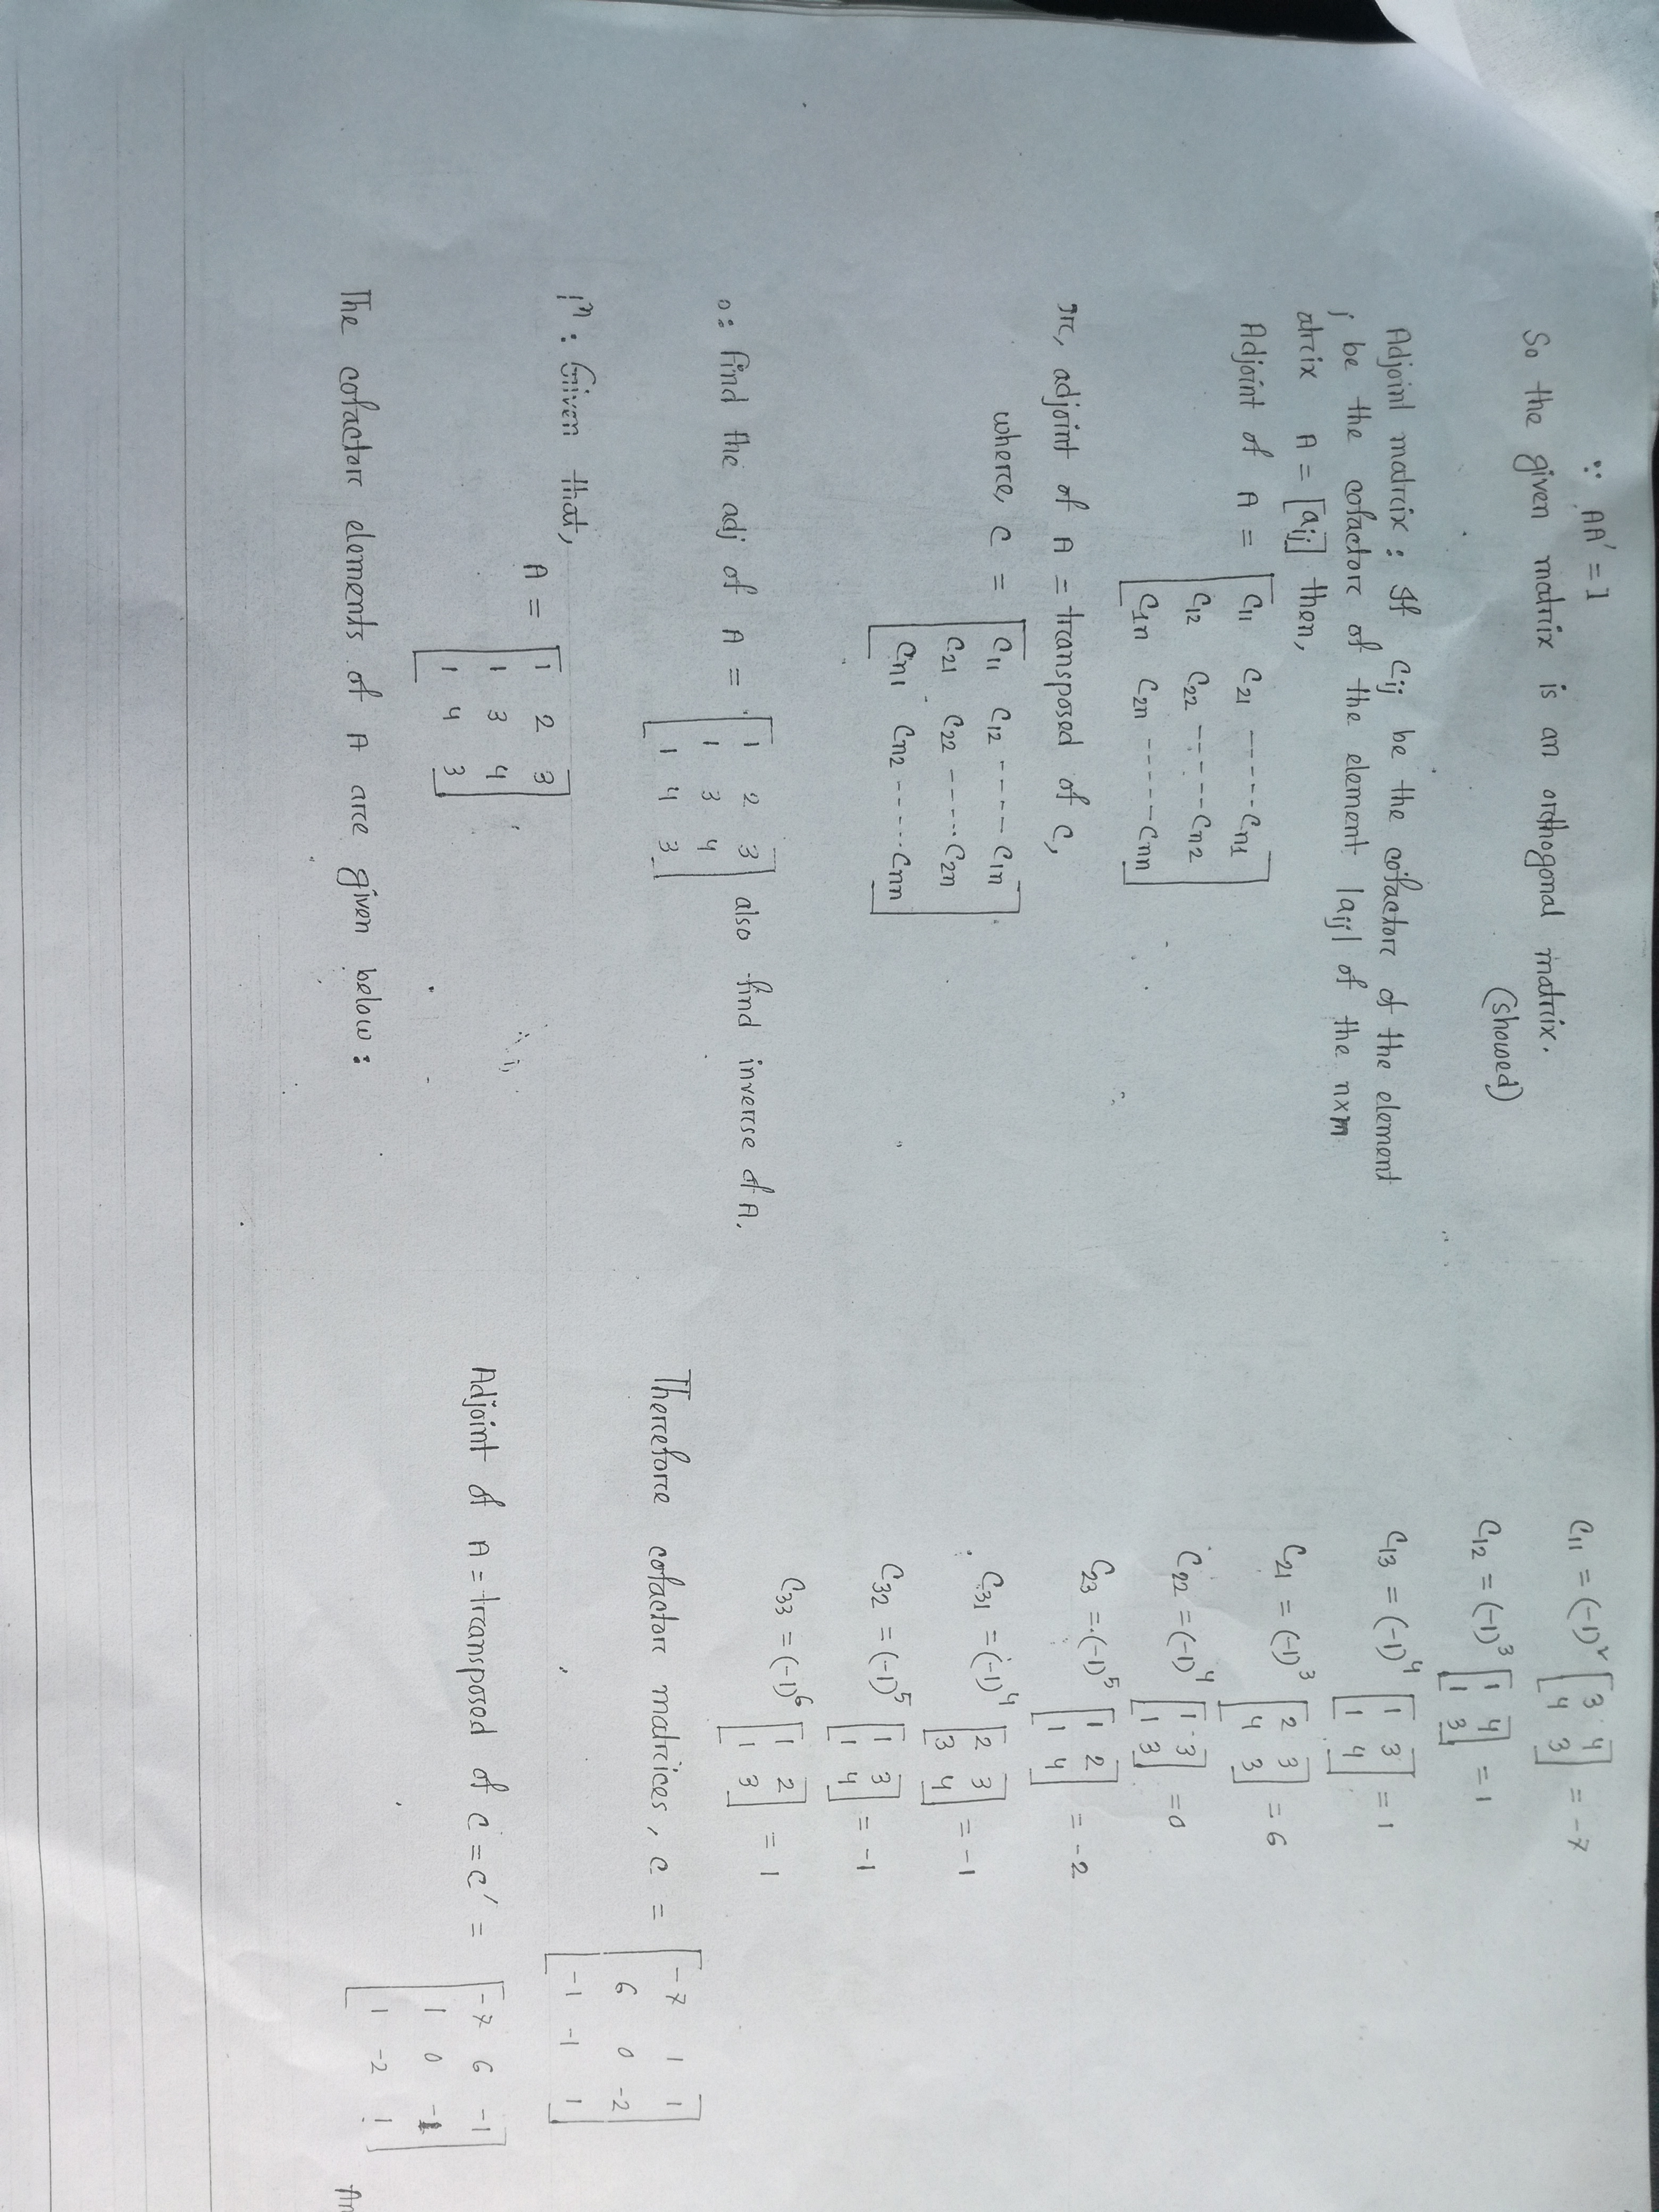 ∵ AA' = I
So the given matrix is an orthogonal matrix.
(showed)
Adjoint matrix : If Cij be the cofactor of the element
j be the cofactor of the element |aij| of the n×m
atrix A = [aij] then,
Adjoint of A = [C11 C21 ------ Cn1
C12 C22 ------ Cn2
C1n C2n ------ Cnn]
or, adjoint of A = transposed of C,
where, C = [C11 C12 ---- C1n
C21 C22 ----- C2n
Cn1 Cn2 ------ Cnn]
o: find the adj of A = [1 2 3
1 3 4
1 4 3] also find inverse of A.
n: Given that,
A = [1 2 3
1 3 4
1 4 3]
The cofactor elements of A are given below :
C11 = (-1)² [3 4
4 3] = -7
C12 = (-1)³ [1 4
1 3] = 1
C13 = (-1)⁴ [1 3
1 4] = 1
C21 = (-1)³ [2 3
4 3] = 6
C22 = (-1)⁴ [1 3
1 3] = 0
C23 = (-1)⁵ [1 2
1 4] = -2
C31 = (-1)⁴ [2 3
3 4] = -1
C32 = (-1)⁵ [1 3
1 4] = -1
C33 = (-1)⁶ [1 2
1 3] = 1
Therefore cofactor matrices, C = [-7 1 1
6 0 -2
-1 -1 1]
Adjoint of A = transposed of C = C' = [-7 6 -1
1 0 -1
1 -2 1]
An